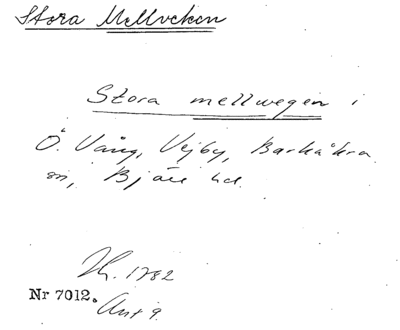 Stora Mellveken
Stora mellwegen i
Ö. Vång, Vejby, Barkåkra
sn, Bjäre hd.
1782
Nr 7012.